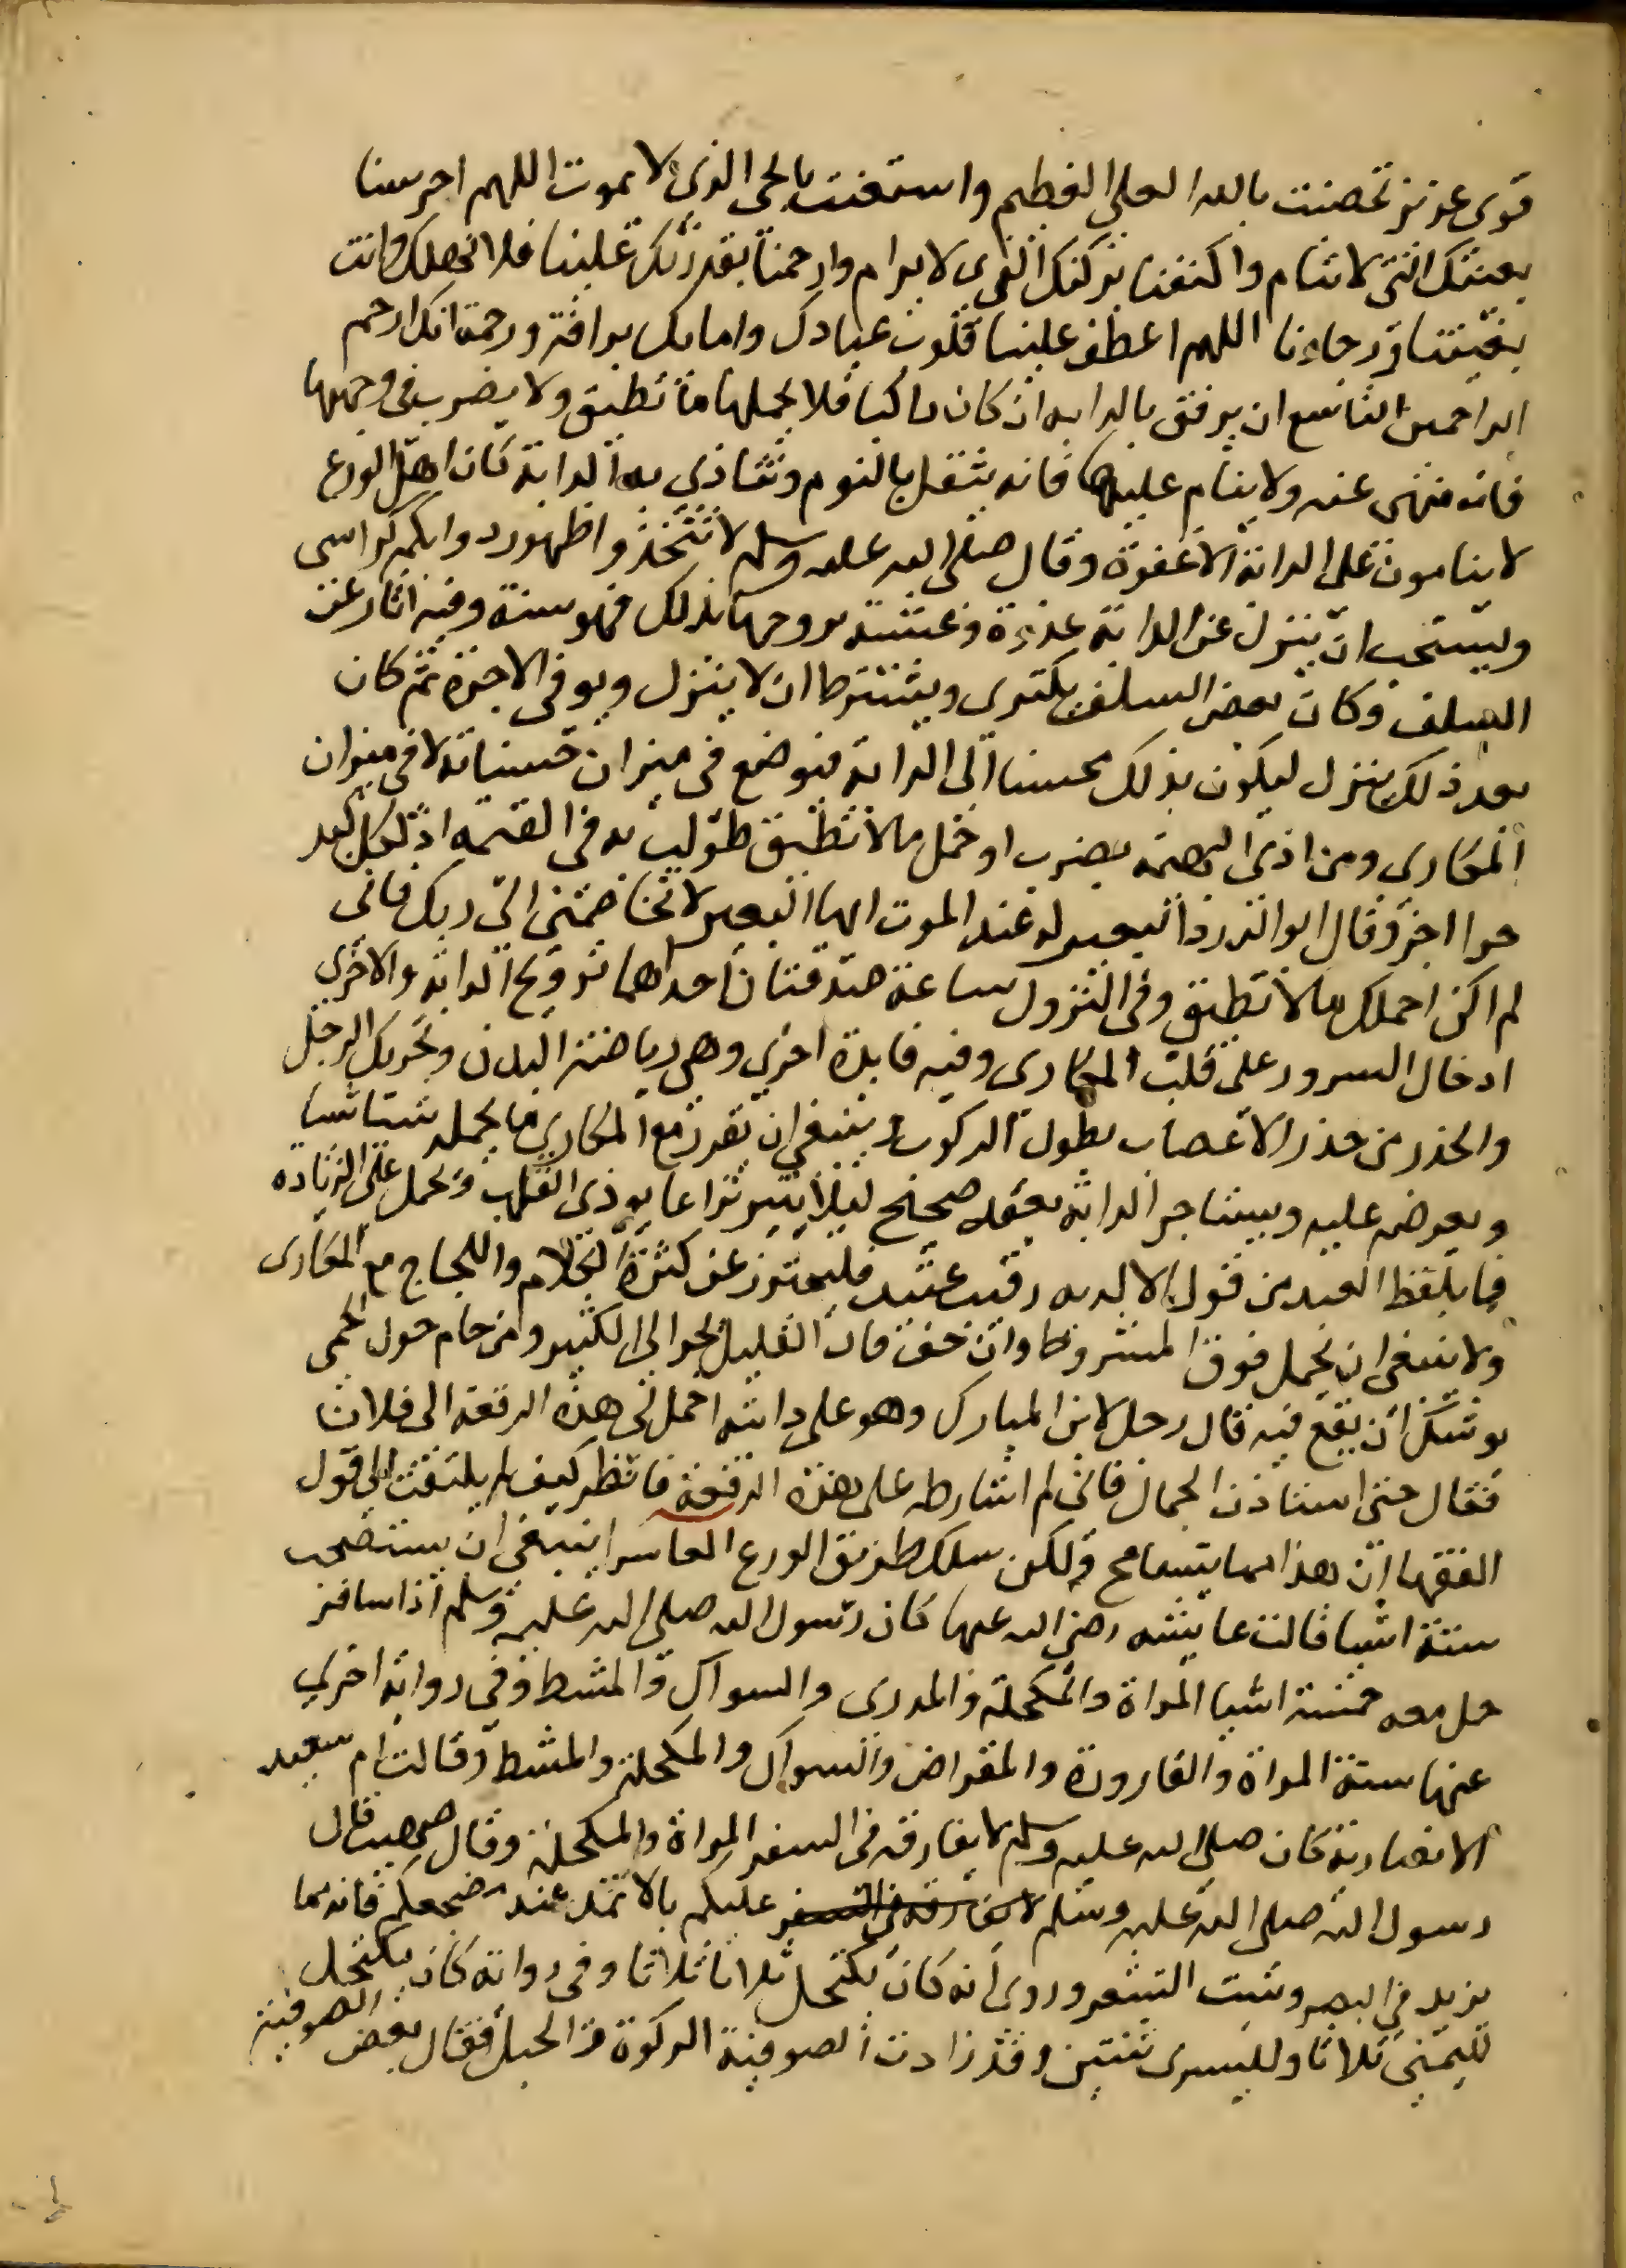 قوى عزيز تحصنت بالله العلي العظيم واستعنت بالحى الذى لا يموت اللهم احرسنا
بعينك التى لا تنام واكنفنا بركنك الذى لا يرام وارحمنا بقدرتك علينا فلا نهلك وانت
ثقتنا ورجاءنا اللهم اعطف علينا قلوب عبادك وامايك برافة ورحمة انك ارحم
الراحمين التاسع ان يرفق بالدابه ان كان راكبا فلا يحملها ما تطيق ولا يضرب فى وجهها
فانه منهى عنه ولا ينام عليها فانه يثقل بالنوم وتتاذى به الدابة كان اهل الورع
لا ينامون على الدابة الا غفوة وقال صلى الله عليه وسلم لا تتخذوا ظهور دوابكم كراسى
ويستحب ان ينزل عن الدابة غدوة وعشية يروحها بذلك فهو سنة وفيه اثار عن
السلف وكان بعض السلف يكترى ويشترط ان لا ينزل ويوفى الاجرة ثم كان
بعد ذلك ينزل ليكون بذلك محسنا الى الدابة فيوضع فى ميزان حسناته لا فى ميزان
المكارى ومن اذى البهيمة بضرب او حمل ما لا تطيق طولب به فى القيمة اذ لكل كبد
حرا اجر وقال ابو الدردا لبعير له عند الموت ايها البعير لا تخاصمنى الى ربك فانى
لم اكن احملك ما لا تطيق وفى النزول ساعة صدقتان احداهما ترويح الدابة والاخرى
ادخال السرور على قلب المكارى وفيه فايدة اخرى وهى رياضة البدن وتحريك الرجل
والحذر من حذر الاعصاب بطول الركوب وينبغى ان يقرر مع المكارى ما يحمله شيا شيا
ويعرضه عليه ويستاجر الدابة بعقد صحيح ليلا يثير نزاعا يوذى القلب ويحمل على الزيادة
فما يلفظ العبد من قول الا لديه رقيب عتيد فليحترز عن كثرة الكلام واللجاج مع المكارى
ولا ينبغى ان يحمل فوق المشروط وان خف فان القليل يجر الى الكثير ومن حام حول الحمى
يوشك ان يقع فيه قال رجل لابن المبارك وهو على دابته احمل لى هذه الرقعة الى فلان
فقال حتى استاذن الجمال فانى لم اشارطه على هذه الرقعة فانظر كيف لم يلتفت الى قول
الفقها ان هذا مما يتسامح ولكن سلك طريق الورع العاشر ينبغى ان يستصحب
ستة اشيا قالت عايشه رضى الله عنها كان رسول الله صلى الله عليه وسلم اذا سافر
حمل معه خمسة اشيا المراة والمكحلة والمدرى والسواك والمشط وفى رواية اخرى
عنها ستة المراة والقارورة والمقراض والسواك والمكحلة والمشط وقالت ام سعيد
الانصارية كان صلى الله عليه وسلم لا يفارقه فى السفر المراة والمكحلة وقال صهيب قال
رسول الله صلى الله عليه وسلم لا يفارقه فى السفر عليكم بالاثمد عند مضجعكم فانه مما
يزيد فى البصر وينبت الشعر وروى انه كان يكتحل ثلاثا ثلاثا وفى رواية كان يكتحل
لليمنى ثلاثا ولليسرى ثنتين وقد زادت الصوفية الركوة والحبل فقال بعض الصوفية